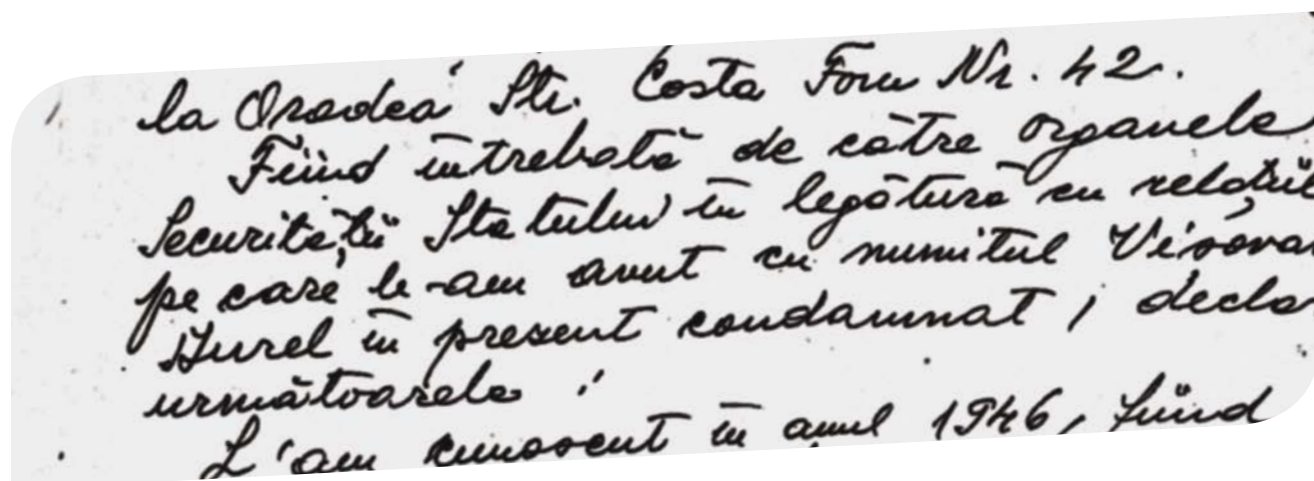 la Oradea Str. Costa Foru Nr. 42.
Fiind întrebată de către organele
Securității Statului în legătură cu relațiile
pe care le-am avut cu numitul Vișovan
Aurel în prezent condamnat, declar
următoarele:
L'am cunoscut în anul 1946, fiind